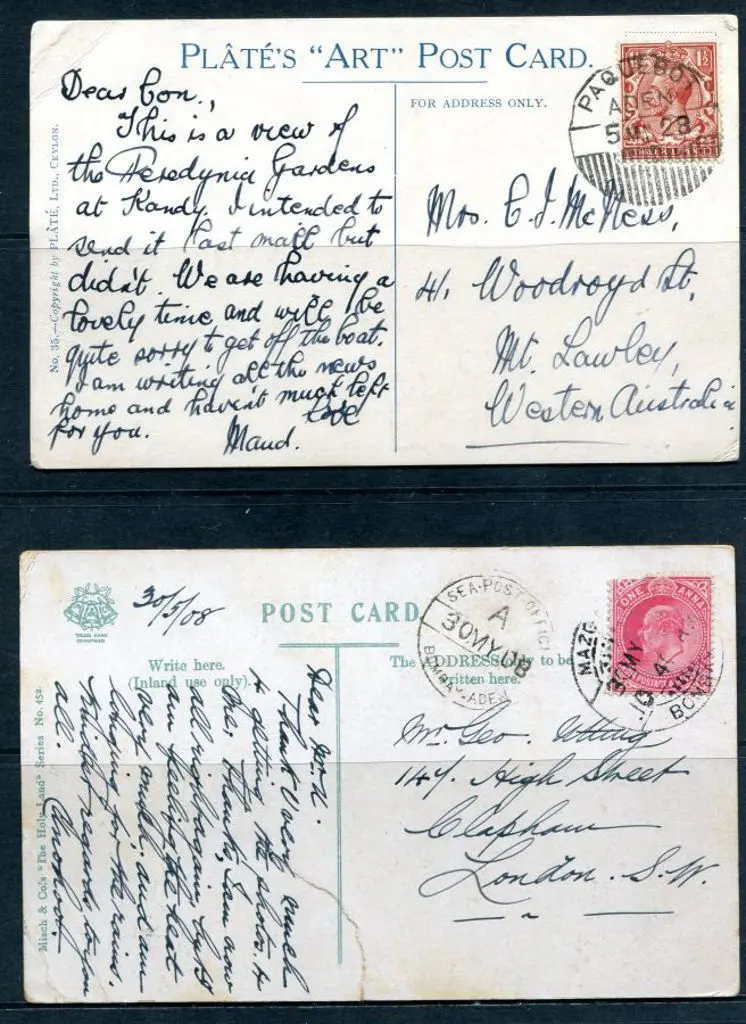 PLÂTÉ'S "ART" POST CARD.
FOR ADDRESS ONLY.
No. 35.—Copyright by PLÂTÉ, LTD., CEYLON.
Dear Con.,
This is a view of
the Peredynia Gardens
at Kandy. I intended to
send it last mail but
didn't. We are having a
lovely time and will be
quite sorry to get off the boat.
I am writing all the news
home and haven't much left
for you. love
Maud.
PAQUEBOT
ADEN
5 MY 28
1½
Mrs. C. J. McNess,
41, Woodroyd St,
Mt. Lawley,
Western Australia
TRADE MARK
30/5/08
POST CARD
Write here.
(Inland use only).
The ADDRESS only to be
written here.
Misch & Co's "The Holy Land" Series No. 452.
SEA·POST·OFFICE
A
30MY08
BOMBAY-ADEN
ONE ANNA
30MY
BOMBAY
Dear
Thank U very much
4 getting the photos. 4
me, thanks, I am now
all right again, but
am feeling the heat
very much and am
longing for the rains.
Kindest regards to you
all.
Mr. Geo. Utting
147. High Street
Clapham
London. S.W.